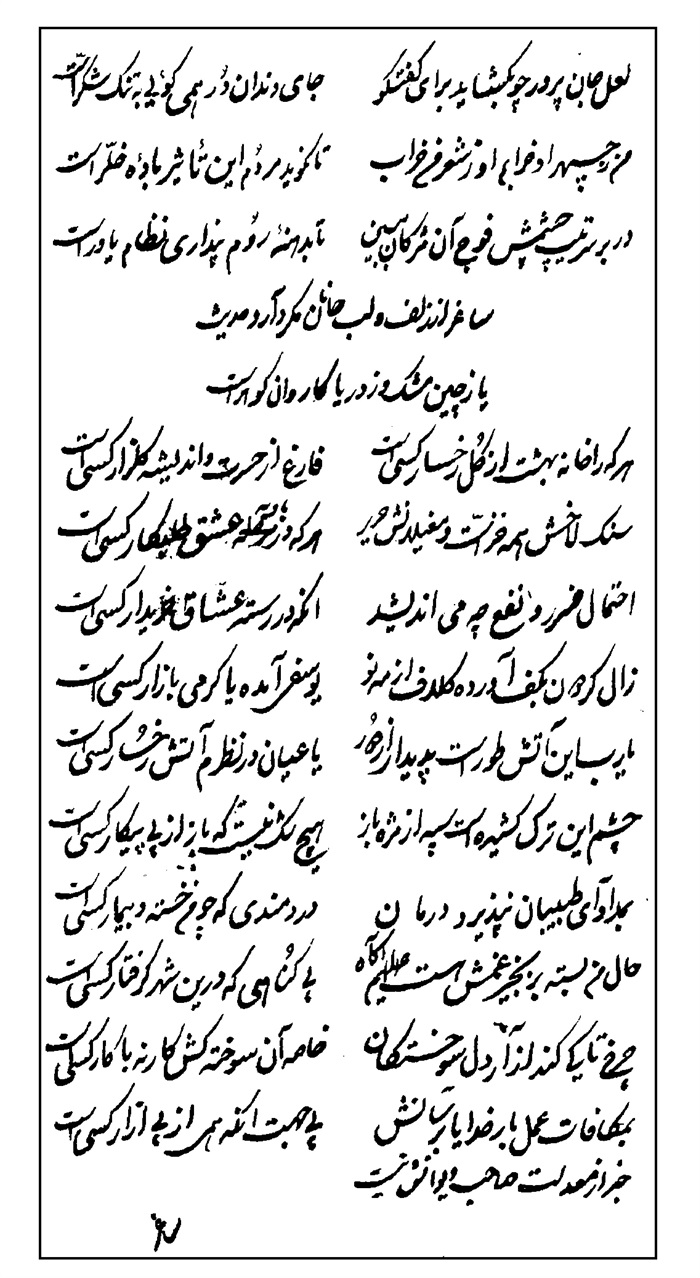 لعل جان پرور چو بگشاید برای گفتگو جای دندان در همی گویی به تنگ شکر است
من ز چهر او خرابم او ز شوق من خراب تا نگوید مردم این تأثیر بادهٔ خلّر است
در بر ترتیب چشمش فوج آن مژگان ببین تا بداهنهٔ روم پنداری نظام یاور است
ساغر از زلف و لب جانان مکرر آرد حدیث
یا ز چین مشک و ز دریا کاروان گوهر است
هر که را خانه بهشت از گل رخسار کسی است فارغ از حسرت و اندیشه گلزار کسی است
سنگ لاخش همه خز است و مغیلانش حریر هر که در مرحله عشق طلبکار کسی است
احتمال ضرر و نفع چه می اندیشد آنکه در رسته عشاق خریدار کسی است
زال گردون بکف آورده کلاف از مه نو یوسفی آمده یا گرمی بازار کسی است
یارب این آتش طور است پدیدار از دور یا عیان در نظرم آتش رخسار کسی است
چشم این ترک کشیده است سپه از مژه باز هیچ شک نیست که باز از پی پیکار کسی است
بمداوای طبیبان نپذیرد درمان دردمندی که چو من خسته و بیمار کسی است
حال من بسته بزنجیر غمش هست آگاه بی گناهی که درین شهر گرفتار کسی است
چرخ تا کی کند آزار دل سوختگان خاصه آن سوخته کش کار نه با کار کسی است
بمکافات عمل بار خدایا برسانش بی جهت آنکه همی از پی آزار کسی است
خبر از معدلت صاحب دیوانش نیست